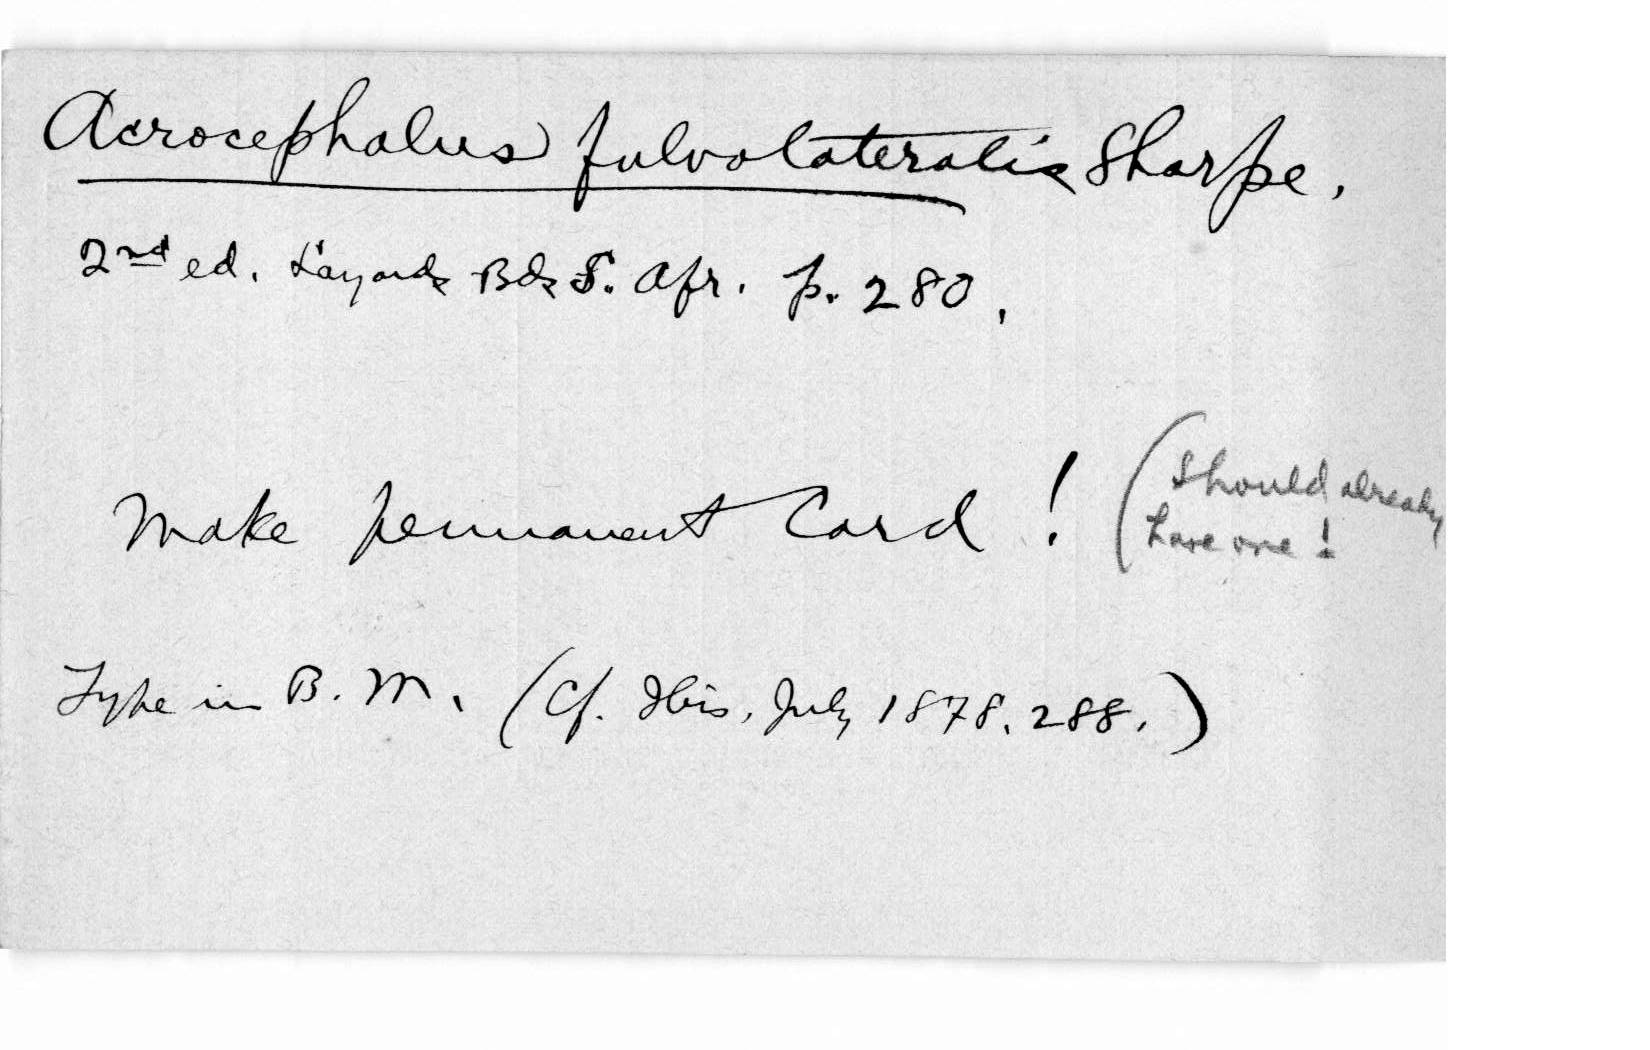 Acrocephalus fulvolateralis Sharpe.
2nd ed. Layards Bds S. Afr. p. 280.
Make permanent Card ! (Should already
have one !
Type in B. M. (Cf. Ibis, July 1878. 288.)